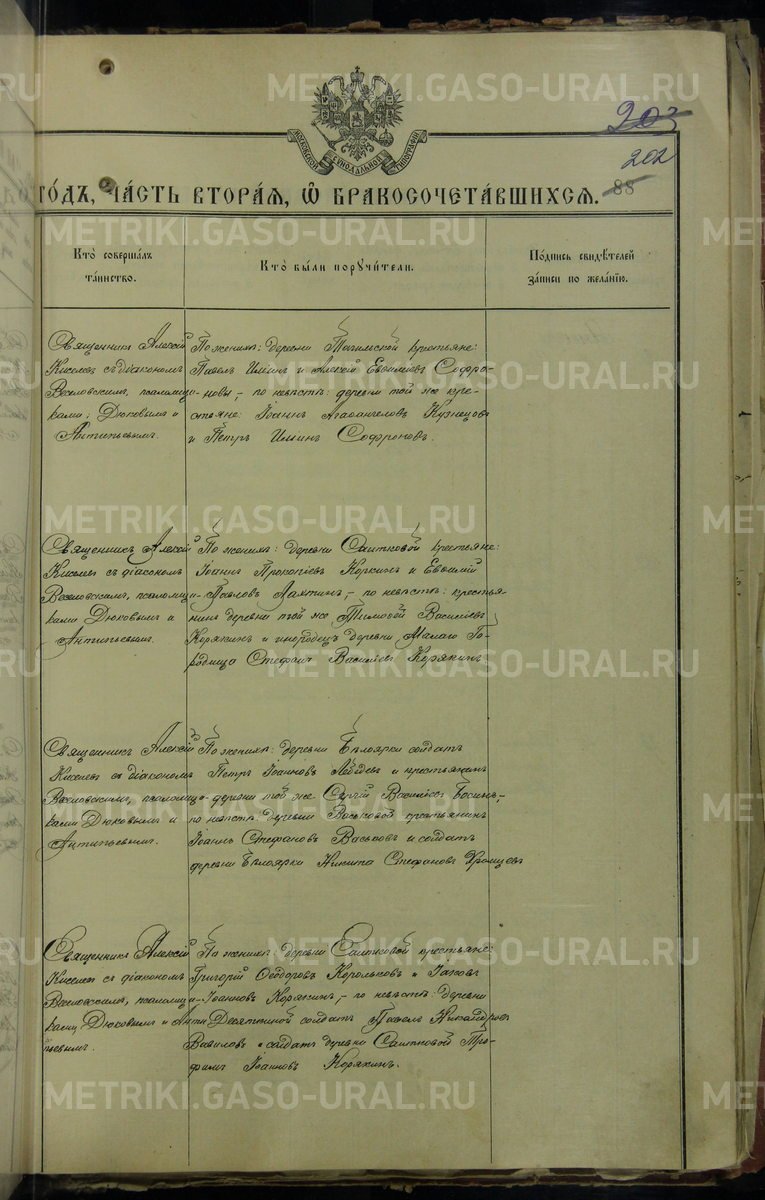 METRIKI.GASO-URAL.RU
МОСКОВСКОЙ СѴНОДАЛЬНОЙ ТИПОГРАФІИ
203
202
88
ГО́ДЪ, ЧА́СТЬ ВТОРА́Я, Ѡ҆ БРАКОСОЧЕТА́ВШИХСЯ.
Кто̀ соверша́лъ
та́инство.
Кто̀ бы́ли порꙋчи́тели.
По́дпись свидѣ́телей
за́писи по жела́нїю.
Священникъ Алексій
Киселев съ діакономъ
Веселовскимъ, псаломщи-
ками: Дюковымъ и
Антипьевымъ.
По женихѣ: деревни Тагильской крестьяне:
Павелъ Ильинъ и Алексій Евѳиміевъ Софро-
новы, - по невѣстѣ: деревни той же кре-
стьяне: Іоаннъ Агаѳангеловъ Кузнецовъ
и Петръ Ильинъ Софроновъ.
Священникъ Алексій
Киселев съ діакономъ
Веселовскимъ, псаломщи-
ками Дюковымъ и
Антипьевымъ.
По женихѣ: деревни Саитковой крестьяне:
Іоаннъ Прокопіевъ Коркинъ и Евѳимій
Павловъ Лахтинъ, - по невѣстѣ: крестья-
нинъ деревни той же Тимоѳей Василіевъ
Корякинъ и инородецъ деревни Малаго Го-
родища Стефанъ Василіевъ Корякинъ
Священникъ Алексій
Киселев съ діакономъ
Веселовскимъ, псаломщи-
ками Дюковымъ и
Антипьевымъ.
По женихѣ: деревни Бѣлоярки солдатъ
Петръ Іоанновъ Лебедевъ и крестьянинъ
деревни той же Сергій Василіевъ
по невѣстѣ: деревни Васьковой крестьянинъ
Іоаннъ Стефановъ Васьковъ и солдатъ
деревни Бѣлоярки Никита Стефановъ Храмцовъ
Священникъ Алексій
Киселев съ діакономъ
Веселовскимъ, псаломщи-
ками Дюковымъ и Анти-
пьевымъ.
По женихѣ: деревни Саитковой крестьяне:
Григорій Ѳеодоровъ Корольковъ и Іаковъ
Іоанновъ Корякинъ, - по невѣстѣ: деревни
Десятиной солдатъ Павелъ Никандровъ
Вавиловъ и солдатъ деревни Саитковой Тро-
фимъ Іоанновъ Корякинъ.